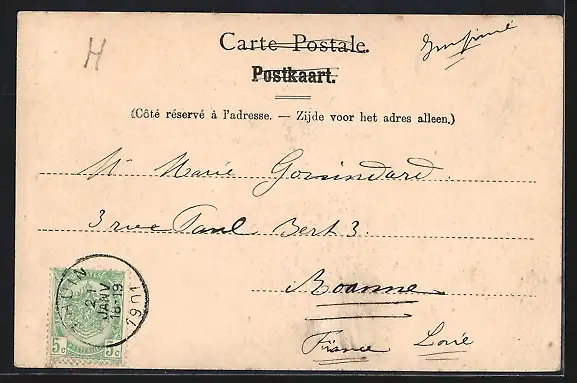 H
Carte Postale.
Imprimé
Postkaart.
(Côté réservé à l'adresse. — Zijde voor het adres alleen.)
Mr Marie
3 rue Paul Bert 3.
Roanne
France Loire
THUIN
21
JANV
18-19
1901
5c 5c